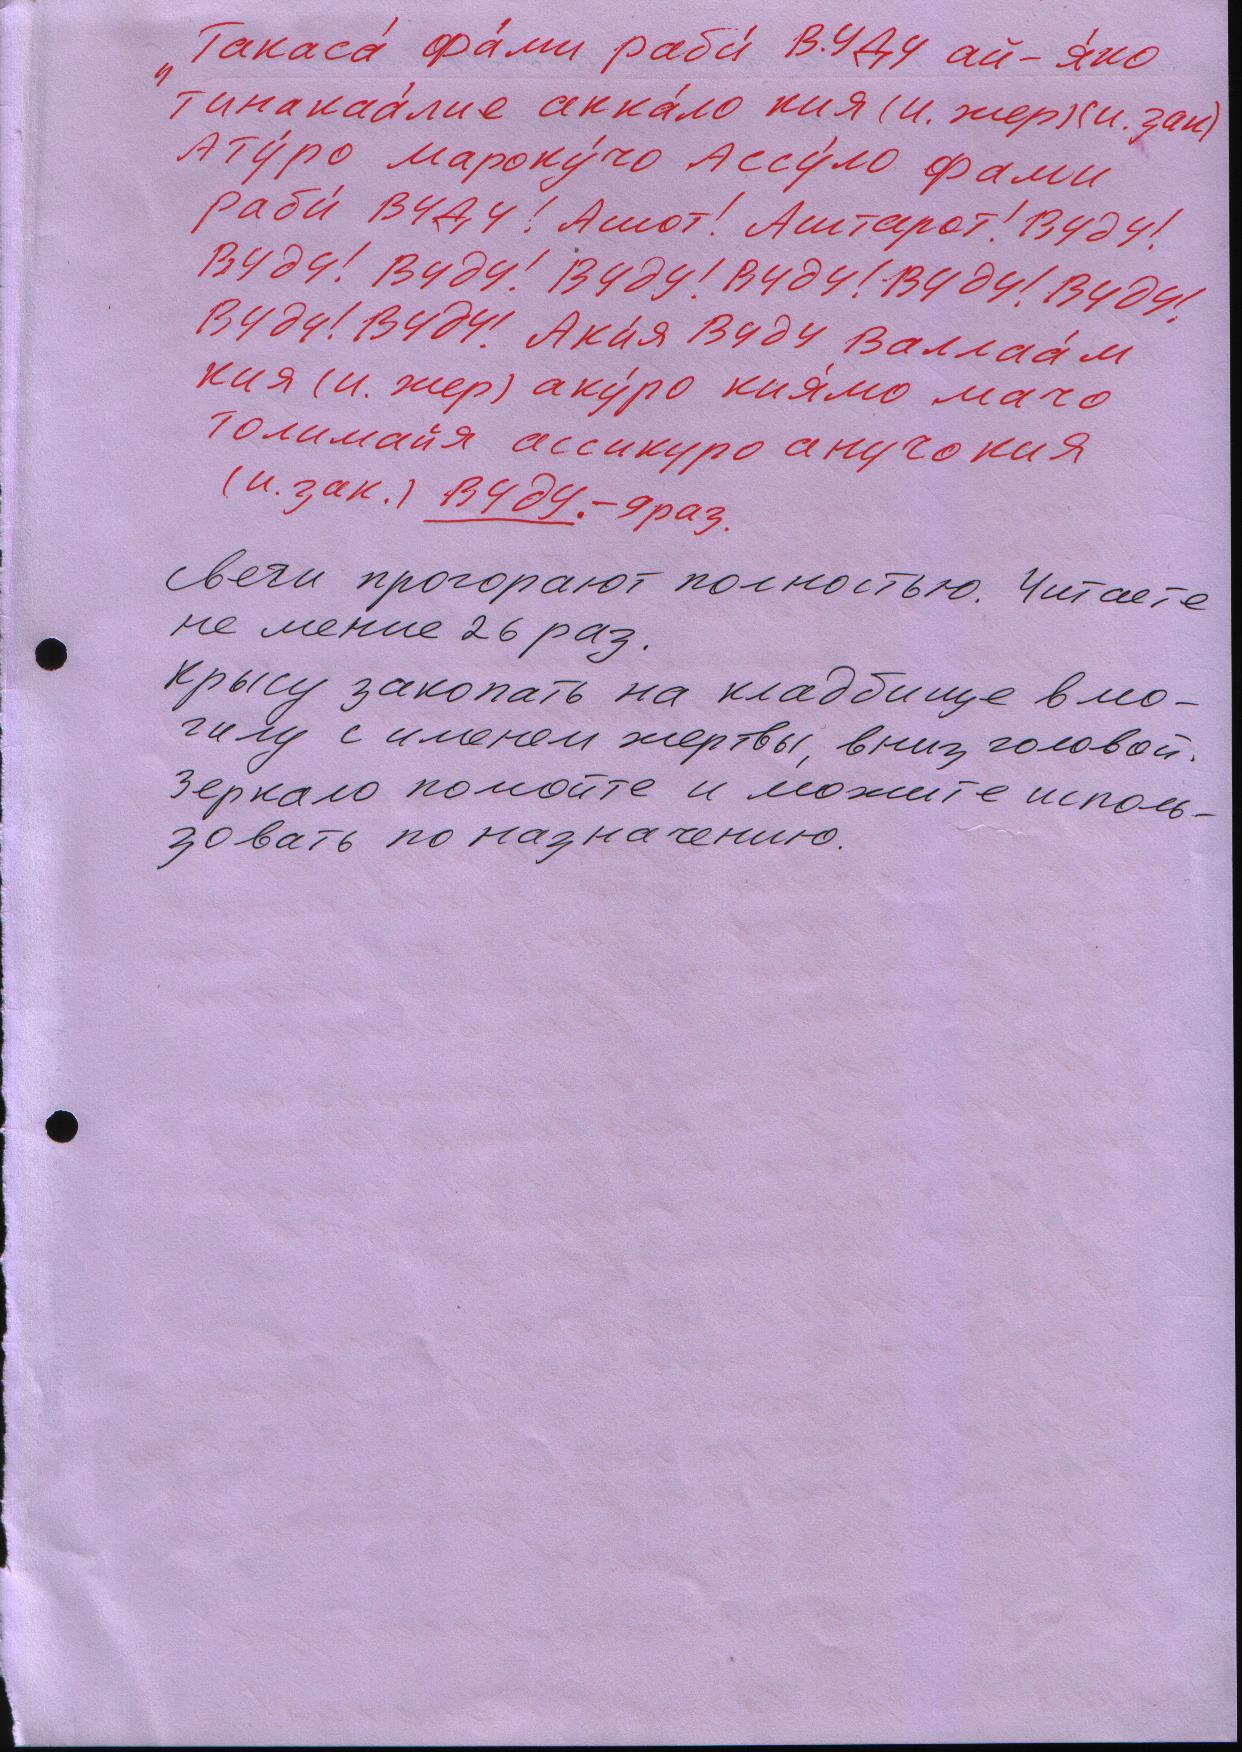 „Такаса́ фа́ми раби́ ВУДУ ай-я́ко
тинакаа́лие акка́ло кия (и. жер) (и. зак)
Ату́ро мароку́чо Ассу́ло фами
раби́ ВУДУ! Ашот! Аштарот! Вуду!
Вуду! Вуду! Вуду! Вуду! Вуду! Вуду!
Вуду! Вуду! Аки́я Вуду Валлаа́м
кия (и. жер) аку́ро кия́мо мачо
толимайя ассикуро анучо кия
(и. зак.) Вуду. - 9 раз.
Свечи прогорают полностью. Читаете
не мение 26 раз.
Крысу закопать на кладбище в мо-
гилу с именем жертвы, вниз головой.
Зеркало помойте и можите исполь-
зовать по назначению.